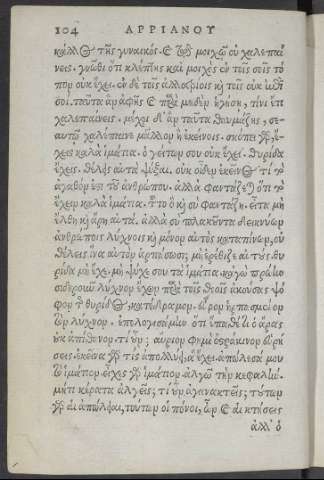 104 ΑΡΡΙΑΝΟΥ
κάλλος τῆς γυναικός. καὶ τῷ μοιχῷ οὐ χαλεπαί
νεις. γνῶθι ὅτι κλέπτης καὶ μοιχὸς ἐν τοῖς σοῖς τό
πον οὐκ ἔχει. ἐν δὲ τοῖς ἀλλοτρίοις κὴ τοῖς οὐκ ἐπὶ
σοί. ταῦτα ἂν ἀφῇς καὶ παρὰ μηδὲν ἡγήσῃ, τίνι ἔτι
χαλεπαίνεις. μέχρι δ' ἂν ταῦτα θαυμάζῃς, σε-
αυτῷ χαλέπαινε μᾶλλον ἢ ἐκείνοις. σκόπει γὰρ, ἔ-
χεις καλὰ ἱμάτια. ὁ γείτων σου οὐκ ἔχει. θυρίδα
ἔχεις. θέλεις αὐτὰ ψύξαι. οὐκ οἶδεν ἐκεῖνος τί τὸ
ἀγαθόν ἐστι τοῦ ἀνθρώπου. ἀλλὰ φαντάζεται ὅτι τὸ
ἔχειν καλὰ ἱμάτια. τοῦτο ὃ κὴ σὺ φαντάζῃ. εἶτα μὴ
ἔλθῃ κὴ ἄρῃ αὐτά. ἀλλὰ σὺ πλακοῦντα δεικνύων
ἀνθρώποις λίχνοις κὴ μόνον αὐτὸς καταπίνων, οὐ
θέλεις ἵνα αὐτὸν ἁρπάσωσι; μὴ ἐρέθιζε αὐτούς. θυ-
ρίδα μὴ ἔχε. μὴ ψύχε σου τὰ ἱμάτια. κἀγὼ πρώην
σιδεροῦν λύχνον ἔχων παρὰ τοῖς θεοῖς ἀκούσας ψό
φον τῆς θυρίδος, κατέδραμον. εὗρον ἡρπασμένον
τὸν λύχνον. ἐπελογισάμην ὅτι ἔπαθέ τι ὁ ἄρας
οὐκ ἀπίθανον. τί οὖν; αὔριον φημὶ ὀστράκινον εὑρή
σεις. ἐκεῖνα γάρ τις ἀπολλύει, ἃ ἔχει. ἀπώλεσά μου
τὸ ἱμάτιον. εἶχες γὰρ ἱμάτιον. ἀλγῶ τὴν κεφαλήν.
μή τι κέρατα ἀλγεῖς; τί οὖν ἀγανακτεῖς; τούτων
γὰρ αἱ ἀπώλειαι, τούτων οἱ πόνοι, ὧν καὶ αἱ κτήσεις
ἀλλ' ὁ